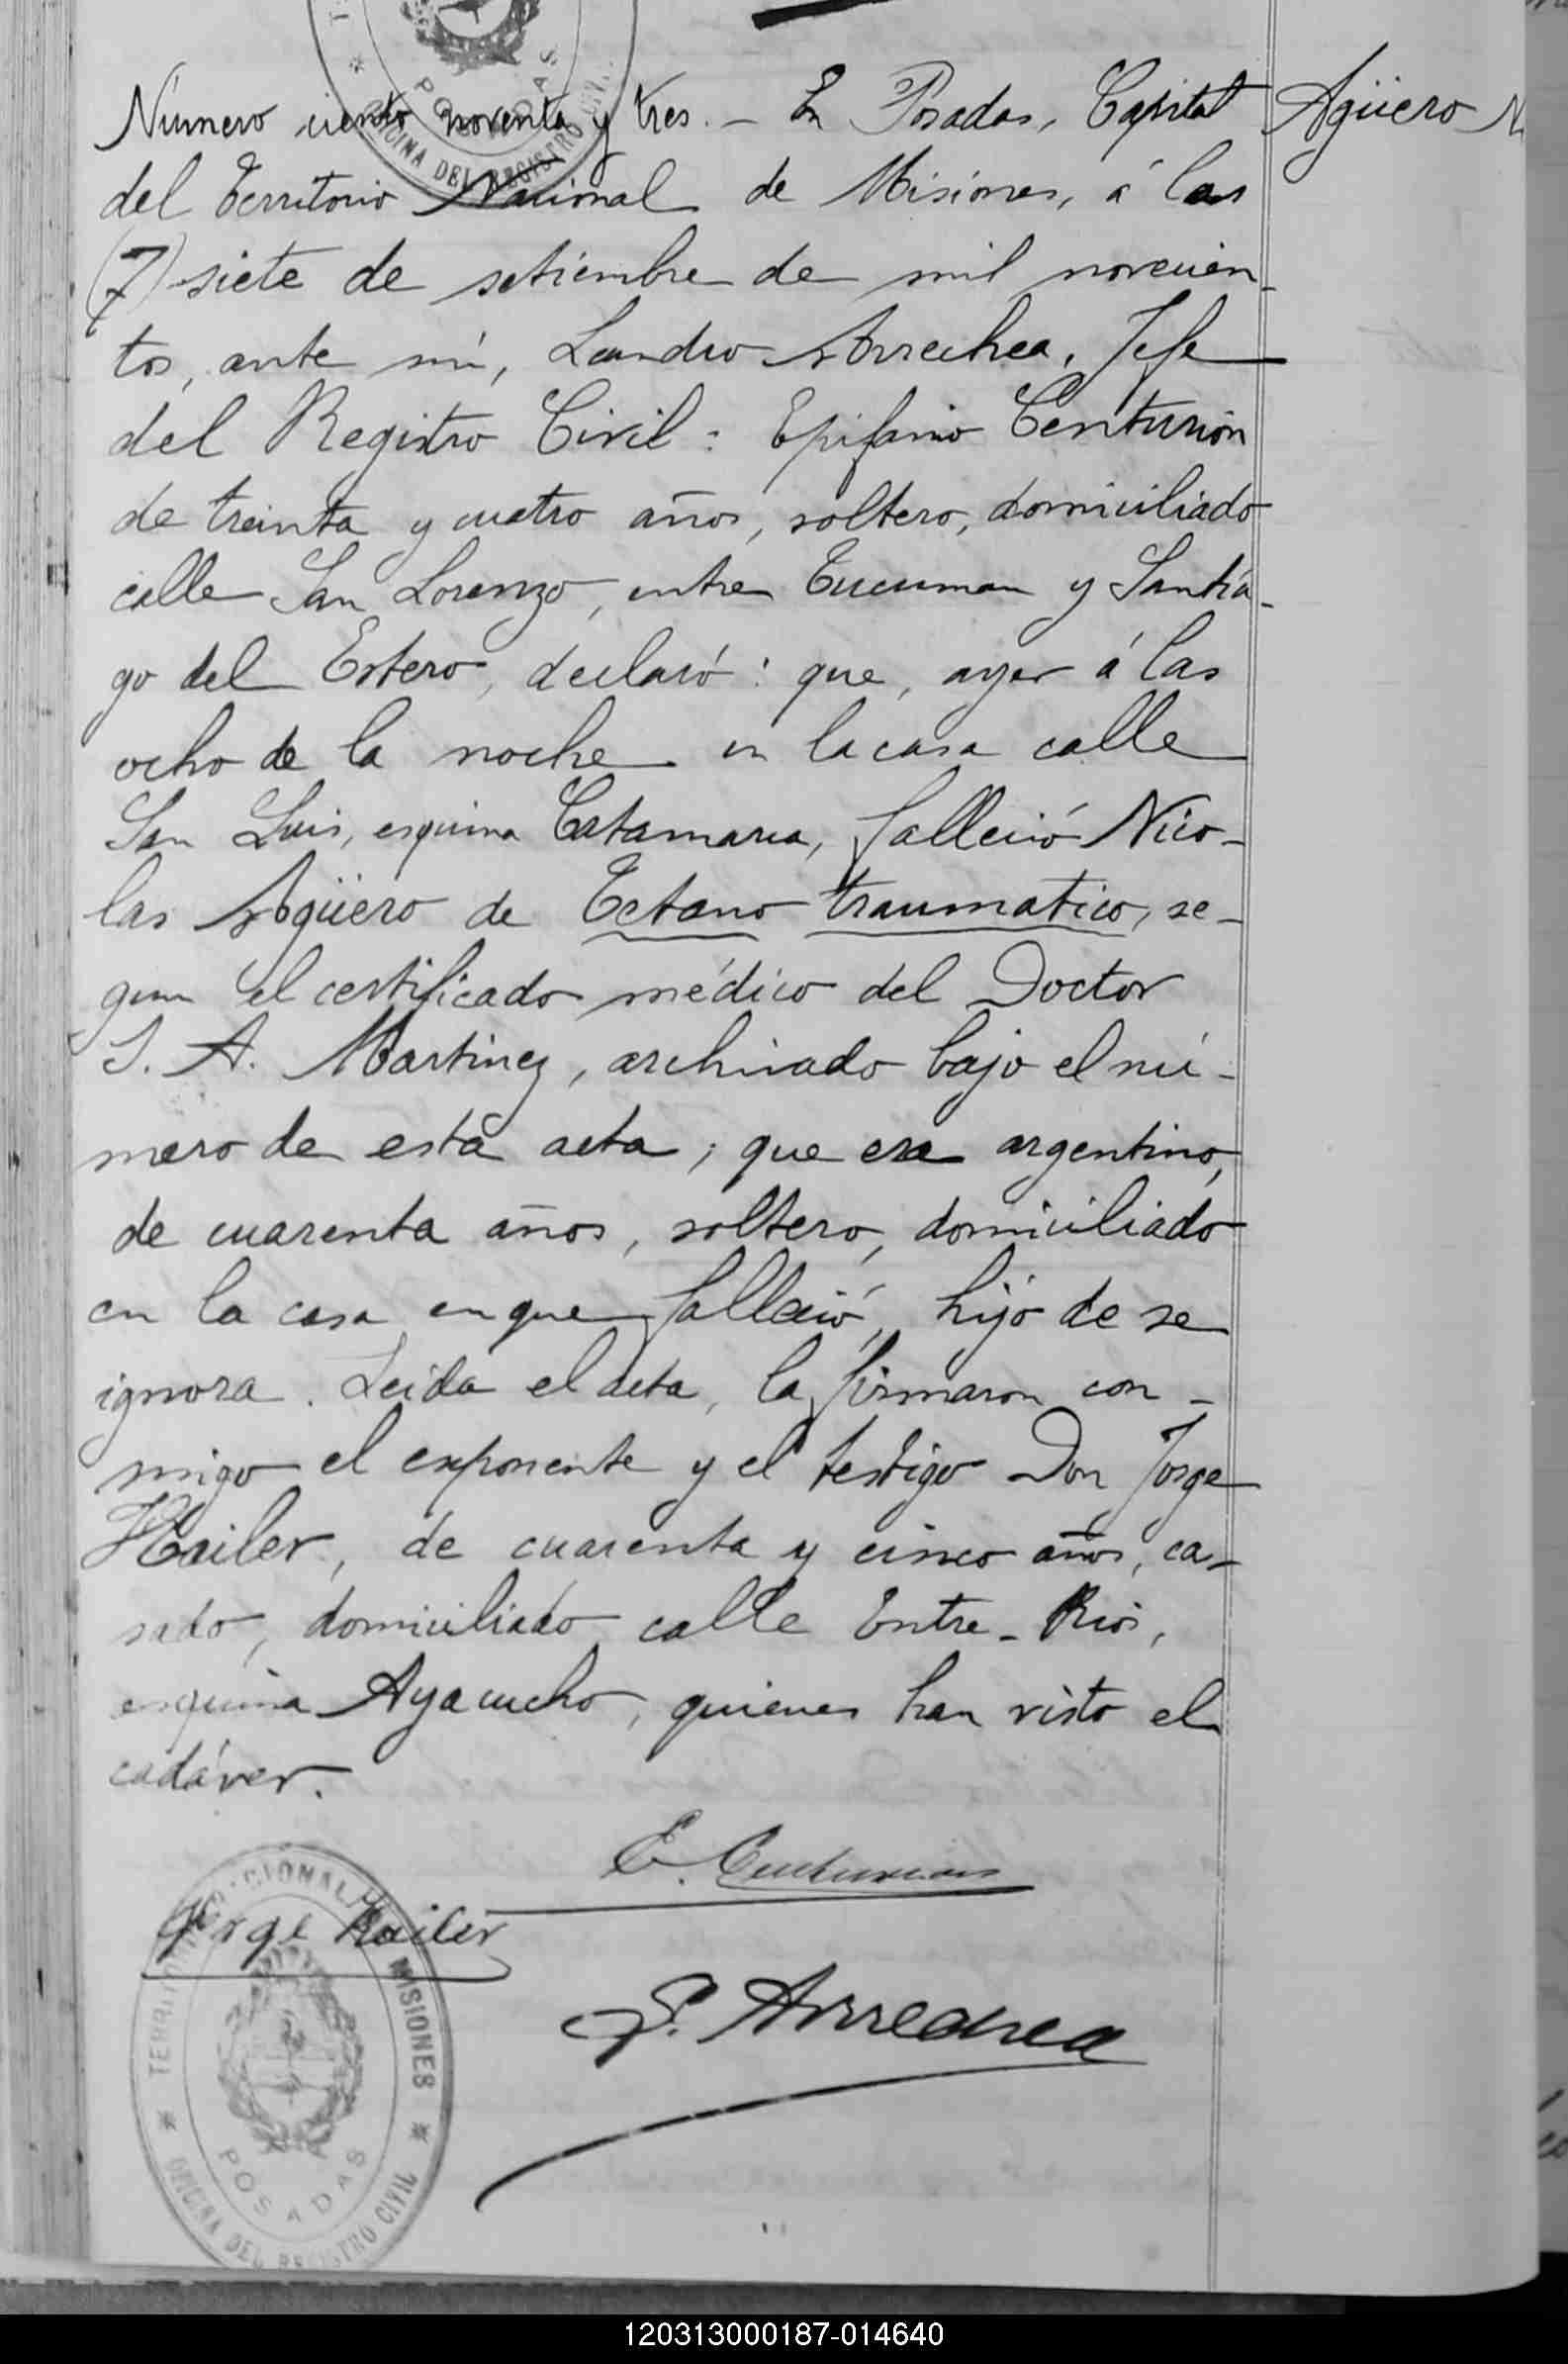 Número ciento noventa y tres. – En Posadas, Capital
Agüero N
del Territorio Nacional de Misiones, á las
(7) siete de setiembre de mil novecien-
tos, ante mí, Leandro Arrechea, Jefe
del Registro Civil: Epifanio Centurión
de treinta y cuatro años, soltero, domiciliado
calle San Lorenzo, entre Tucuman y Santia-
go del Estero, declaró: que, ayer á las
ocho de la noche en la casa calle
San Luis, esquina Catamarca, falleció Nico-
las Agüero de Tetano traumatico, se-
gun el certificado médico del Doctor
S. A. Martinez, archivado bajo el nú-
mero de esta acta; que era argentino,
de cuarenta años, soltero, domiciliado
en la casa en que falleció, hijo de se
ignora. Leida el acta, la firmaron con-
migo el exponente y el testigo Don Jorge
Hailer, de cuarenta y cinco años, ca-
sado, domiciliado calle Entre-Rios,
esquina Ayacucho, quienes han visto el
cadáver.
E. Centurion
Jorge Hailer
L. Arrechea
TERRITORIO NACIONAL DE MISIONES
POSADAS
OFICINA DEL REGISTRO CIVIL
120313000187-014640